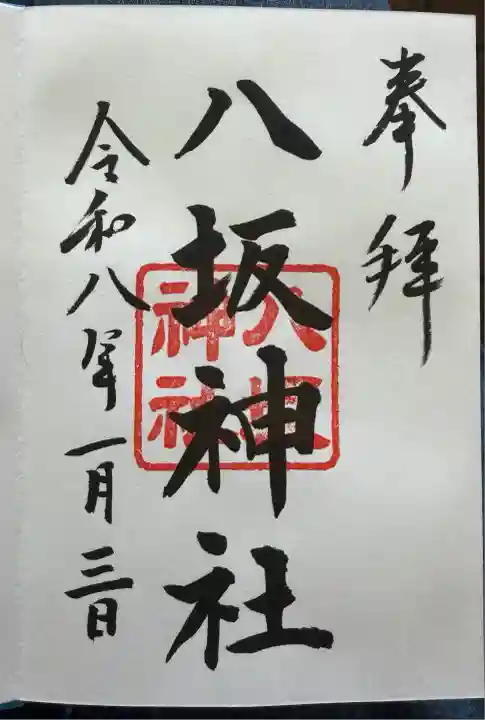 奉拜
八坂神社
八坂
神社
令和八年一月三日